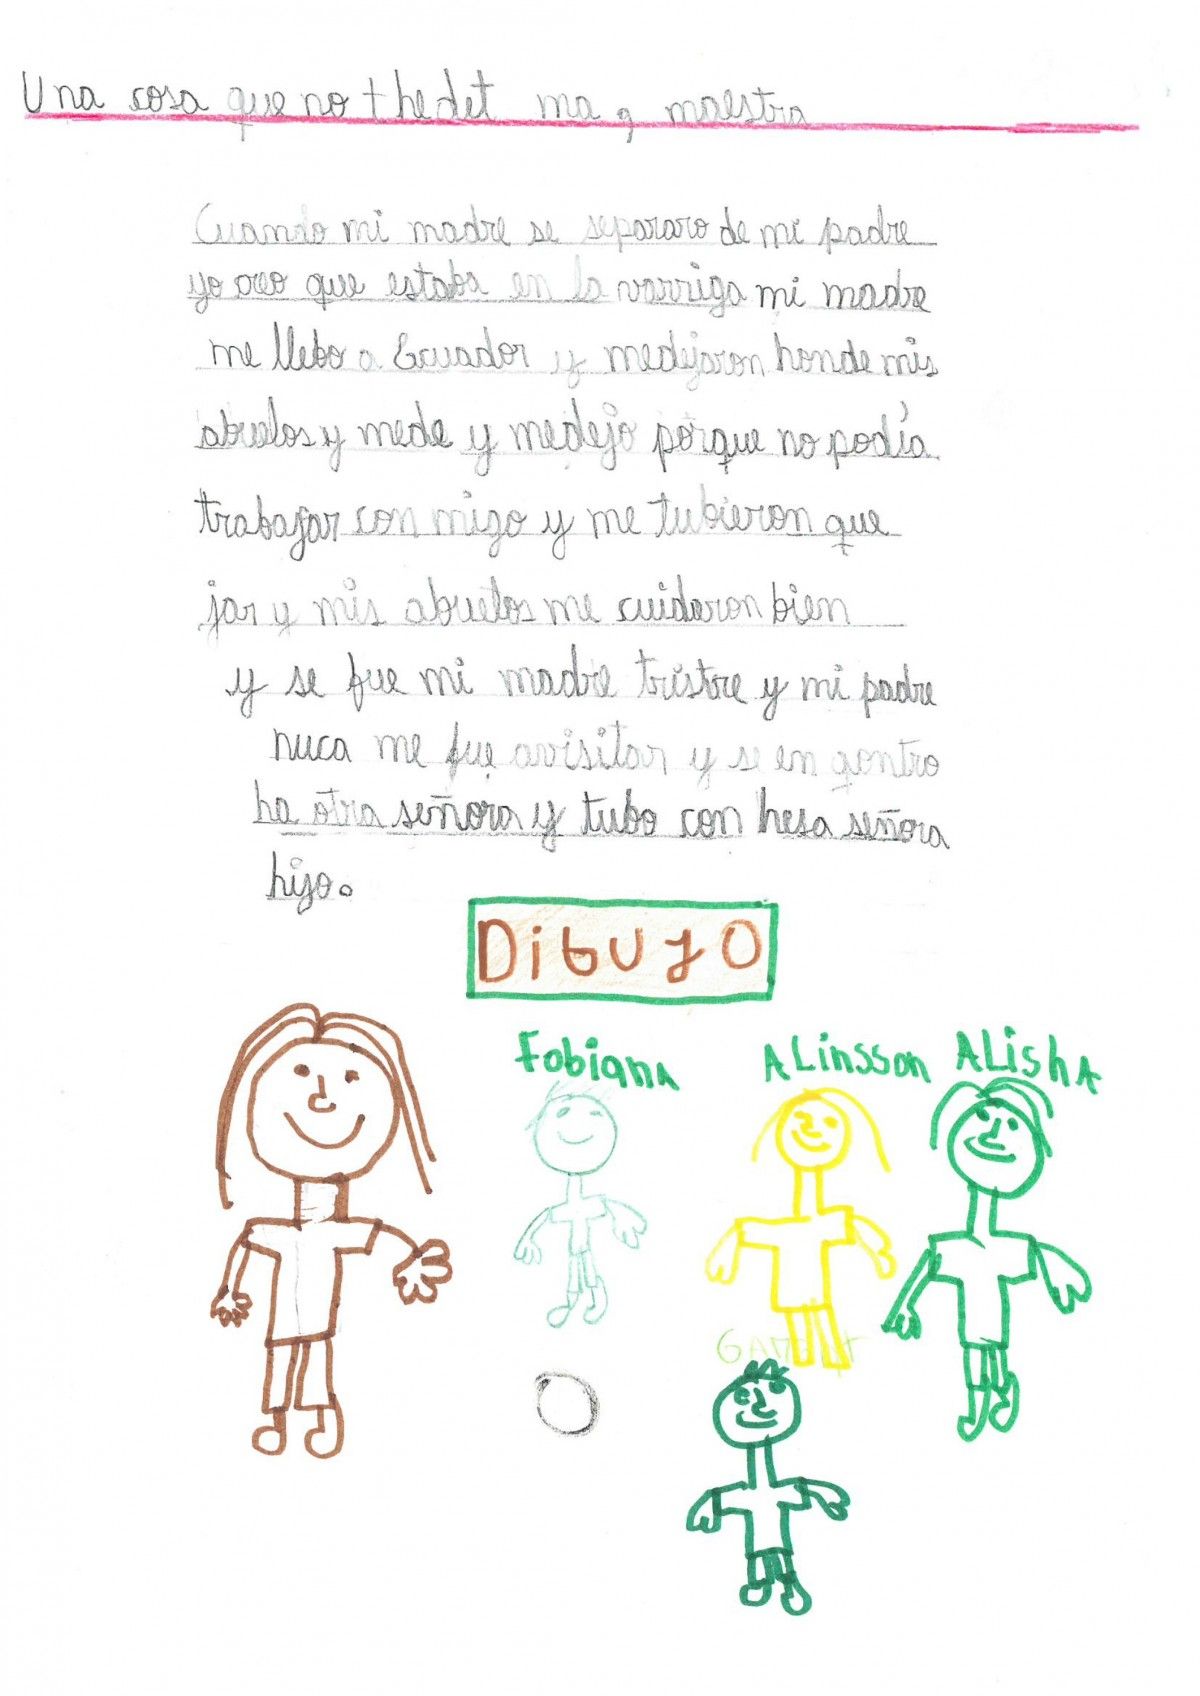 Una cosa que no thedet ma q maestra
Cuando mi madre se separaro de mi padre
yo creo que estaba en la varriga mi madre
me llebo a Ecuador y medejaron honde mis
abuelos y mede y medejo porque no podía
trabajar con migo y me tubieron que
jar y mis abuelos me cuidaron bien
y se fue mi madre tristre y mi padre
nuca me fue avisitar y se en gontro
ha otra señora y tubo con hesa señora
hijo.
DibujO
Fobiana ALinsson ALishA